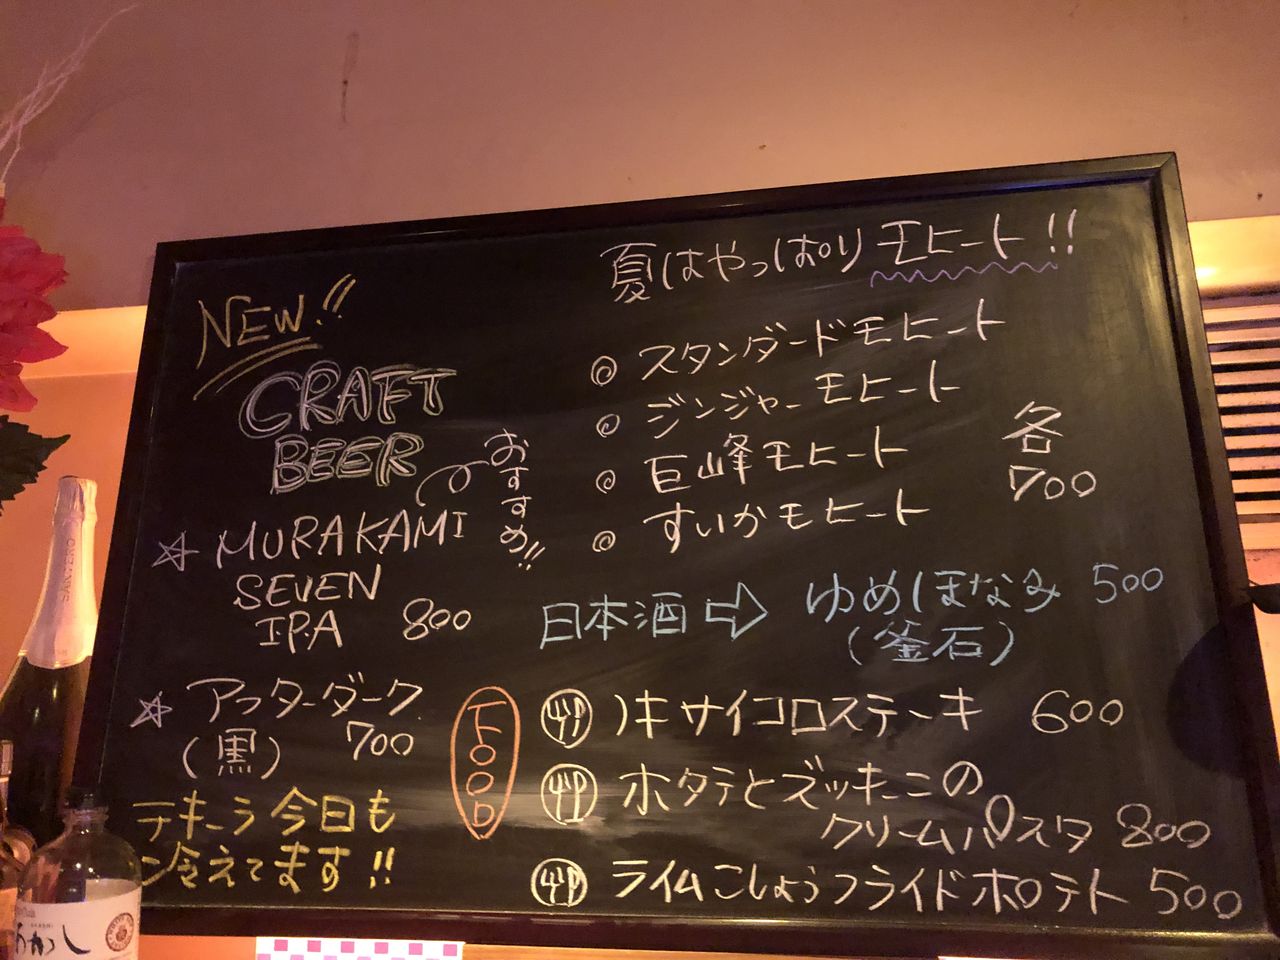 NEW!!
CRAFT
BEER
おすすめ!!
☆ MURAKAMI
SEVEN
I.P.A 800
☆ アフターダーク
(黒) 700
テキーラ今日も
冷えてます!!
夏はやっぱりモヒート!!
◎ スタンダードモヒート
◎ ジンジャーモヒート
◎ 巨峰モヒート
◎ すいかモヒート
各
700
日本酒 ⇨ ゆめほなみ 500
(釜石)
FOOD
サイコロステーキ 600
ホタテとズッキーニの
クリームパスタ 800
ライムこしょうフライドポテト 500
SANTERO
あかし